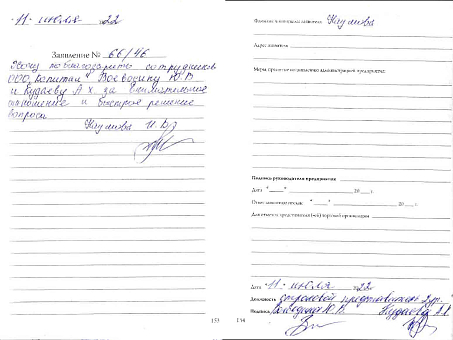 "11" июля 2022
Заявление № 66/46
Хочу поблагодарить сотрудников
ООО "Капитал" Воеводину Ю.В
и Кудаеву А.Х. за внимательное
отношение и быстрое решение
вопроса
Наумова И.
153
Фамилия, имя, отчество заявителя Наумова
Адрес заявителя
Меры, принятые по заявлению администрацией предприятия:
Подпись руководителя предприятия
Дата " " 20 г.
Ответ заявителю послан " " 20 г.
Для отметок представителей торговой организации
Дата "11" июля 2022
Должность
Подпись Воеводина Ю.В. Кудаева А.Х.
154